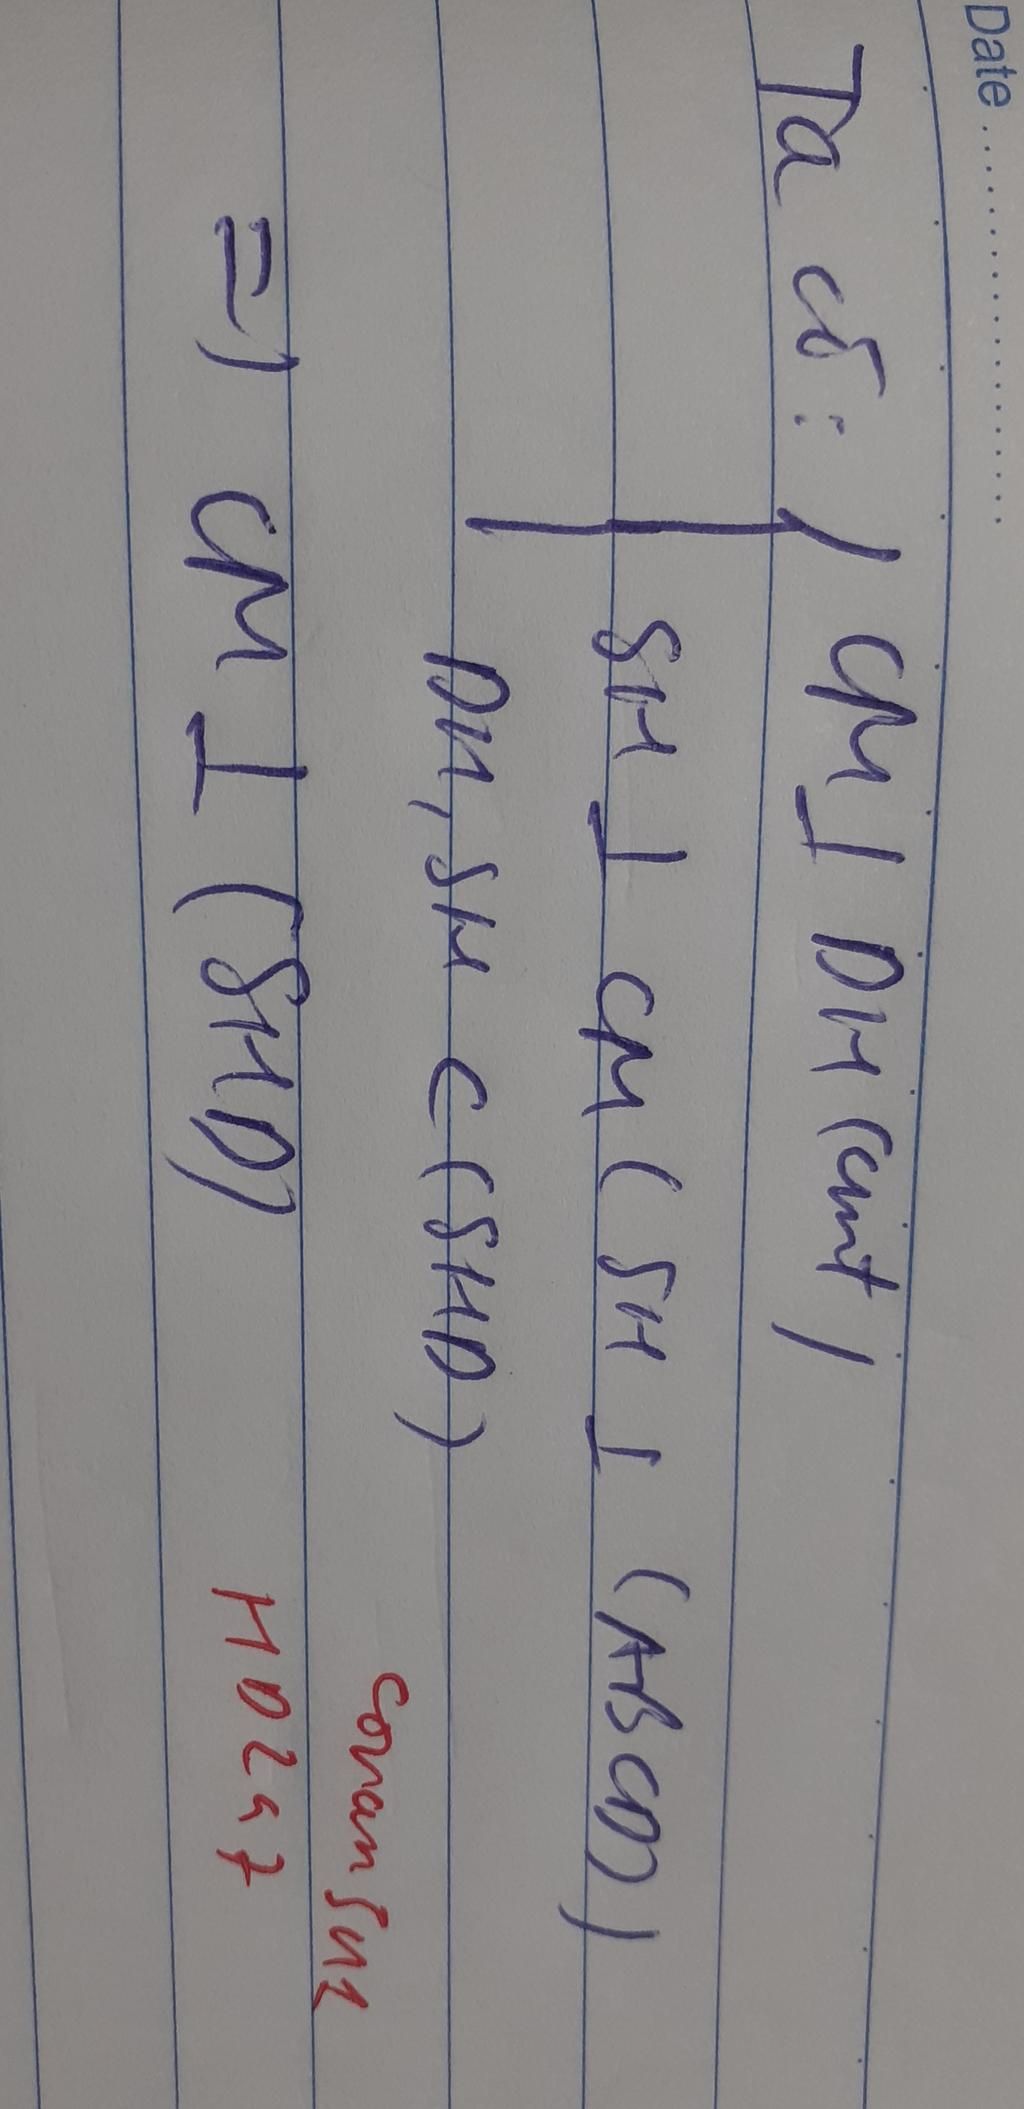 Date
Ta có: CM ⊥ DH (cmt)
SH ⊥ CM (SH ⊥ (ABCD)
DH, SH ⊂ (SHD)
=) CM ⊥ (SHD)
conansuz
HD247